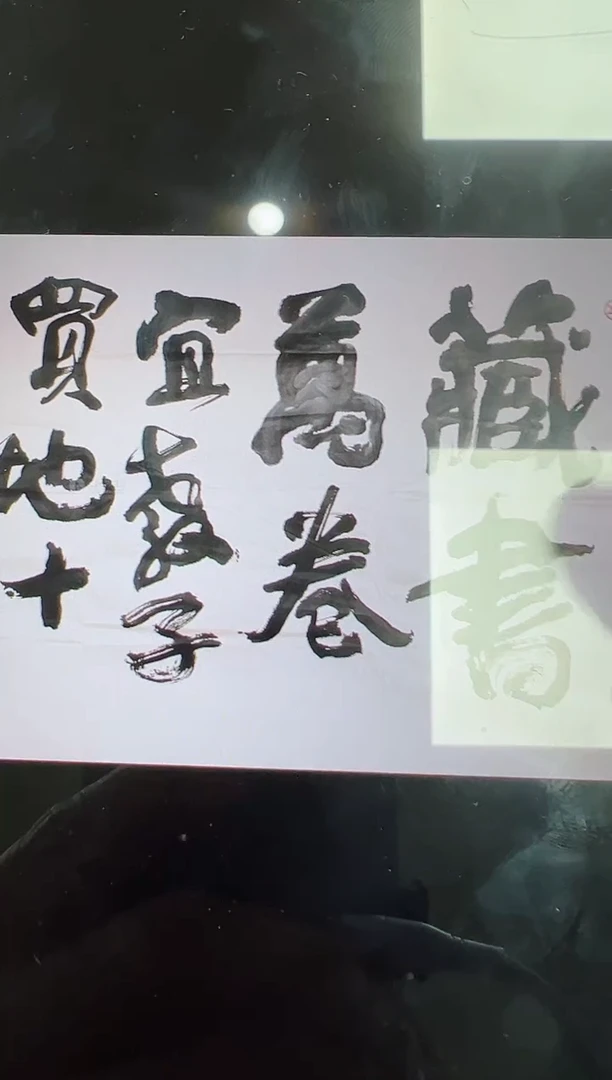 藏書
萬卷
宜教子
買地十